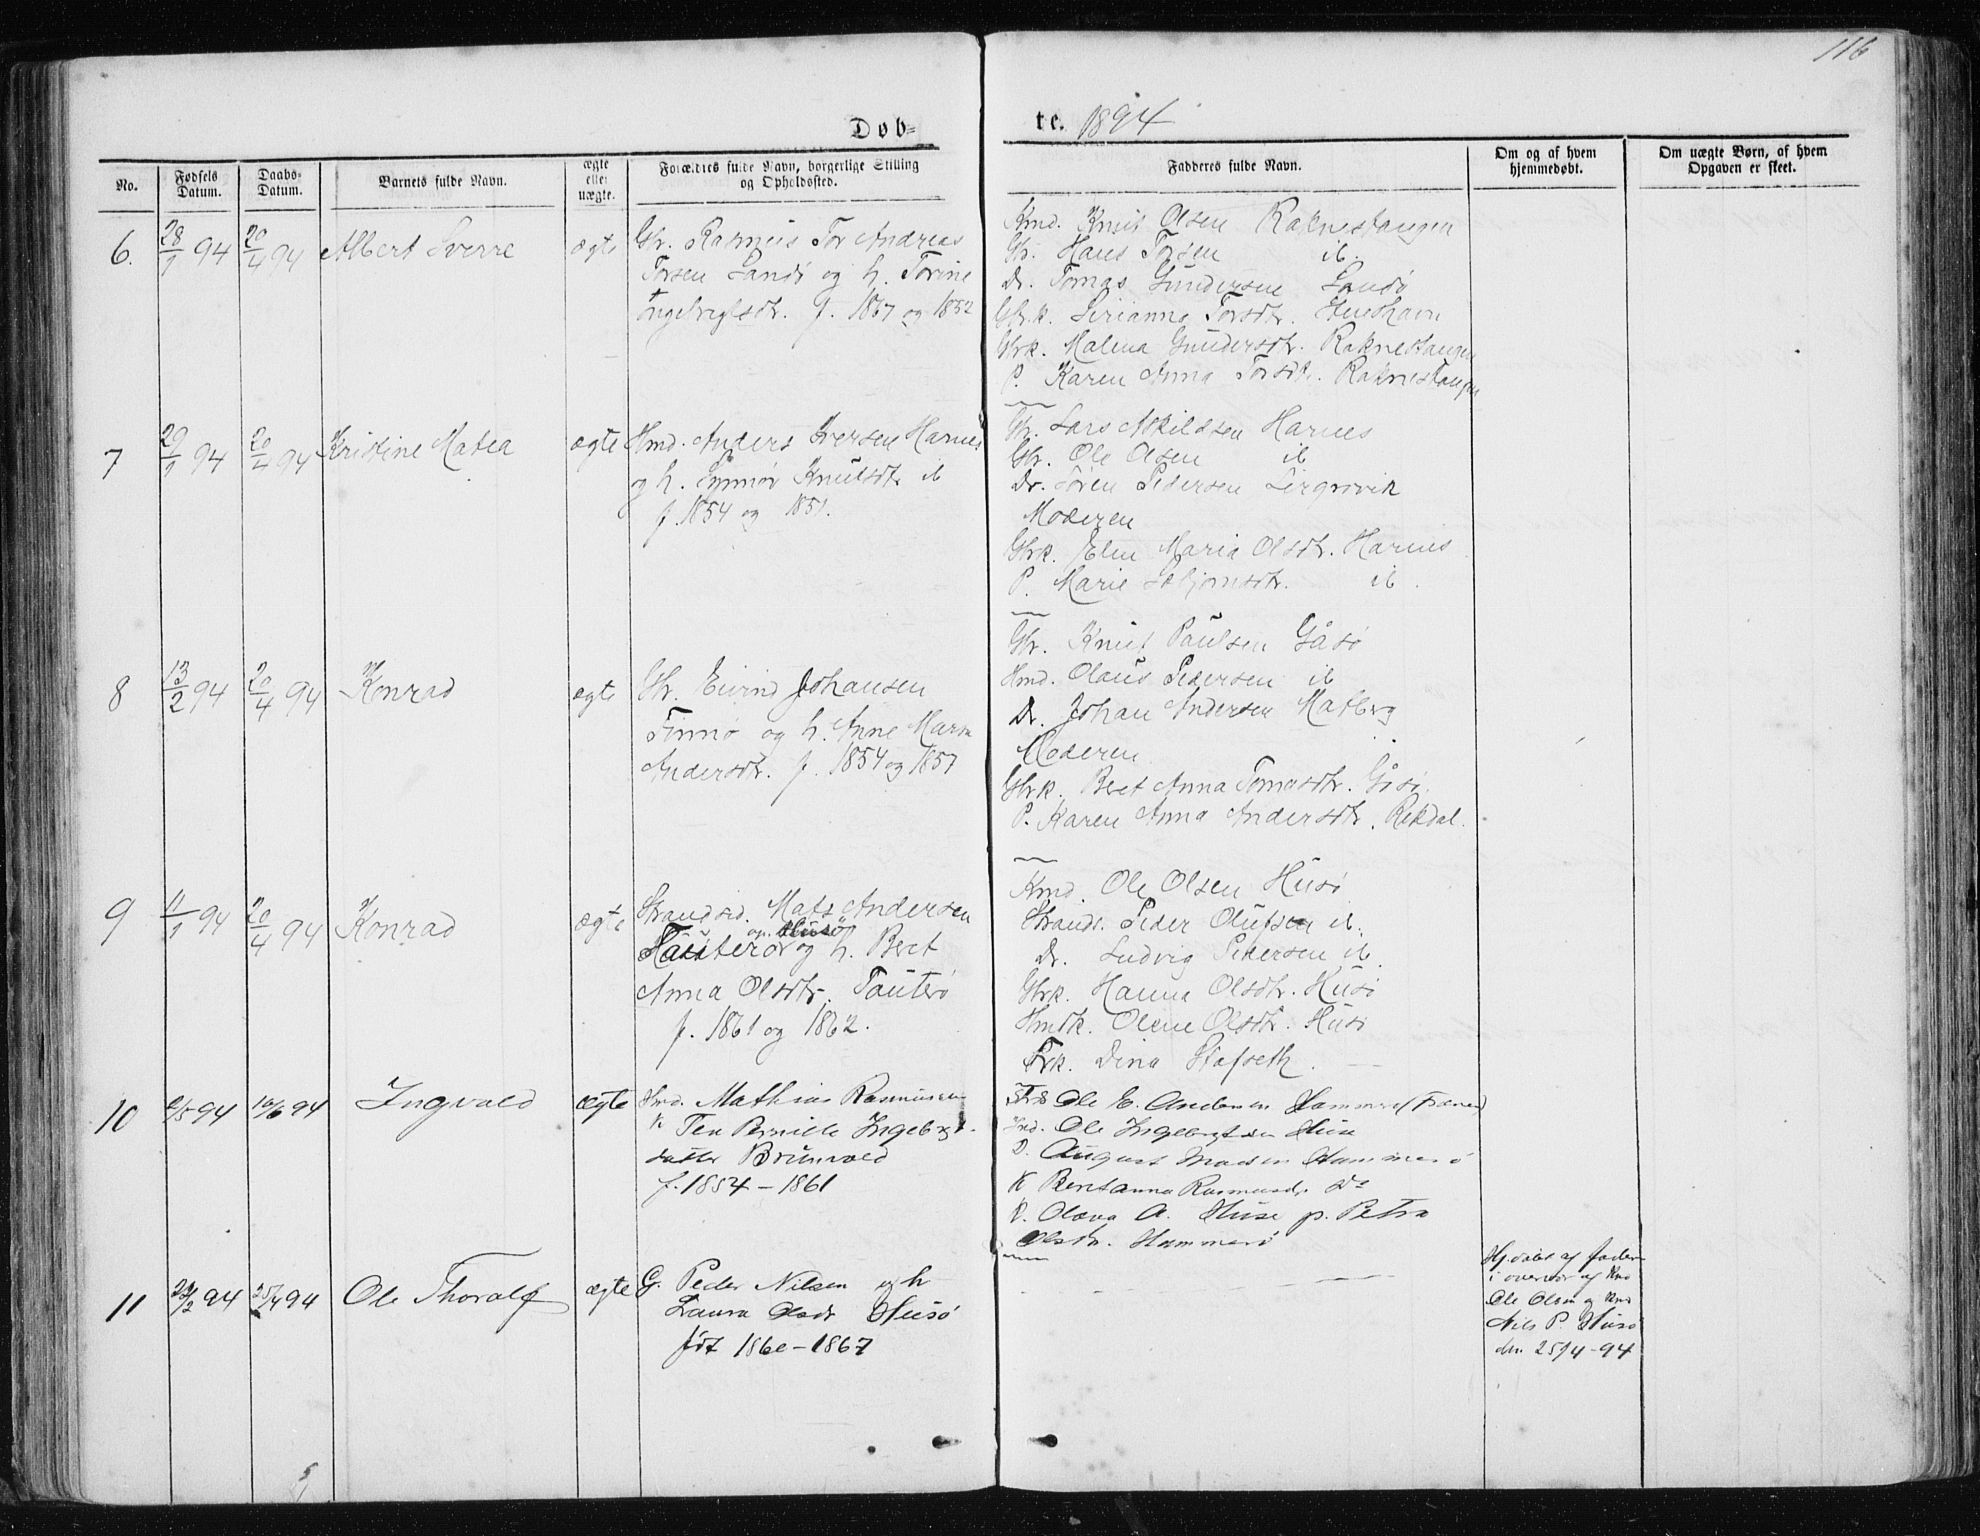 116
Døb-
te. 1894
No.
Fødsels Datum.
Daabs-Datum.
Barnets fulde Navn.
ægte eller uægte.
Forældres fulde Navn, borgerlige Stilling og Opholdssted.
Fadderes fulde Navn.
Om og af hvem hjemmedøbt.
Om uægte Børn, af hvem Opgaven er skeet.
6. 28/1 94 20/4 94 Albert Sverre ægte Gbr. Rasmus Tor Andreas
Torsen Sandø og h. Torine
Ingebrigtsdtr. f. 1867 og 1852
Kmd. Knut Olsen Raknestangen
Gbr. Hans Torsen ib.
Dr. Tomas Gundersen Sandø
Gbrk. Sirianna Torsdtr.
Gbrk. Malena Gundersdtr. Raknestangen
P. Karen Anna Torsdtr. Raknestangen
7 29/1 94 20/4 94 Kristine Matea ægte Hmd. Anders Iversen Harnes
og h. Synnøv Knutsdtr ib
f. 1854 og 1851.
Gbr. Lars Askildsen Harnes
Gbr. Ole Olsen ib
Dr. Søren Pedersen
Moderen
Gbrk. Elen Maria Olsdtr. Harnes
P. Marie ib.
8 13/2 94 20/4 94 Konrad ægte Gbr. Eivind Johansen
Finnø og h. Anne Marta
Andersdtr. f. 1854 og 1857
Gbr. Knut Paulsen Gåsø
Hmd. Olaus Pedersen ib
Dr. Johan Andersen Malberg
Moderen
Gbrk. Beret Anna Tomasdtr. Gåsø.
P. Karen Anna Andersdtr. Rekdal.
9 11/1 94 20/4 94 Konrad ægte Strandsid. Mats Andersen
Tauterø og h. Beret
Anna Olsdtr. Tauterø
f. 1861 og 1862.
Kmd. Ole Olsen Husø
Strands. Peder Olufsen ib.
Dr. Ludvig Pedersen ib.
Gbrk. Hanna Olsdtr. Husø
Hmdk. Olene Olsdtr. Husø
Frk. Dina Stafseth.
10 6/5 94 10/6 94 Ingvald ægte Hmd. Mathias Rasmussen
K Pernille Ingebrigt-
datter Brunvold
f. 1854 – 1861
Ole E. Andersen Hammerø
Ole Ingebrigtsen Huse
D. August Madsen Hammerø
K Beretanna Rasmusdr Do
P. Olava A. Huse p. Petra
Olsdr. Hammerø
11 94 25/4 94 Ole Thoralf ægte G. Peder Nilsen og h
Laura Olsdr Husø
født 1860 – 1867
Hj.døbt af faderen
i overvær af Kmd
Ole Olsen og Kmd
Nils P. Husø
den 25/4 - 94